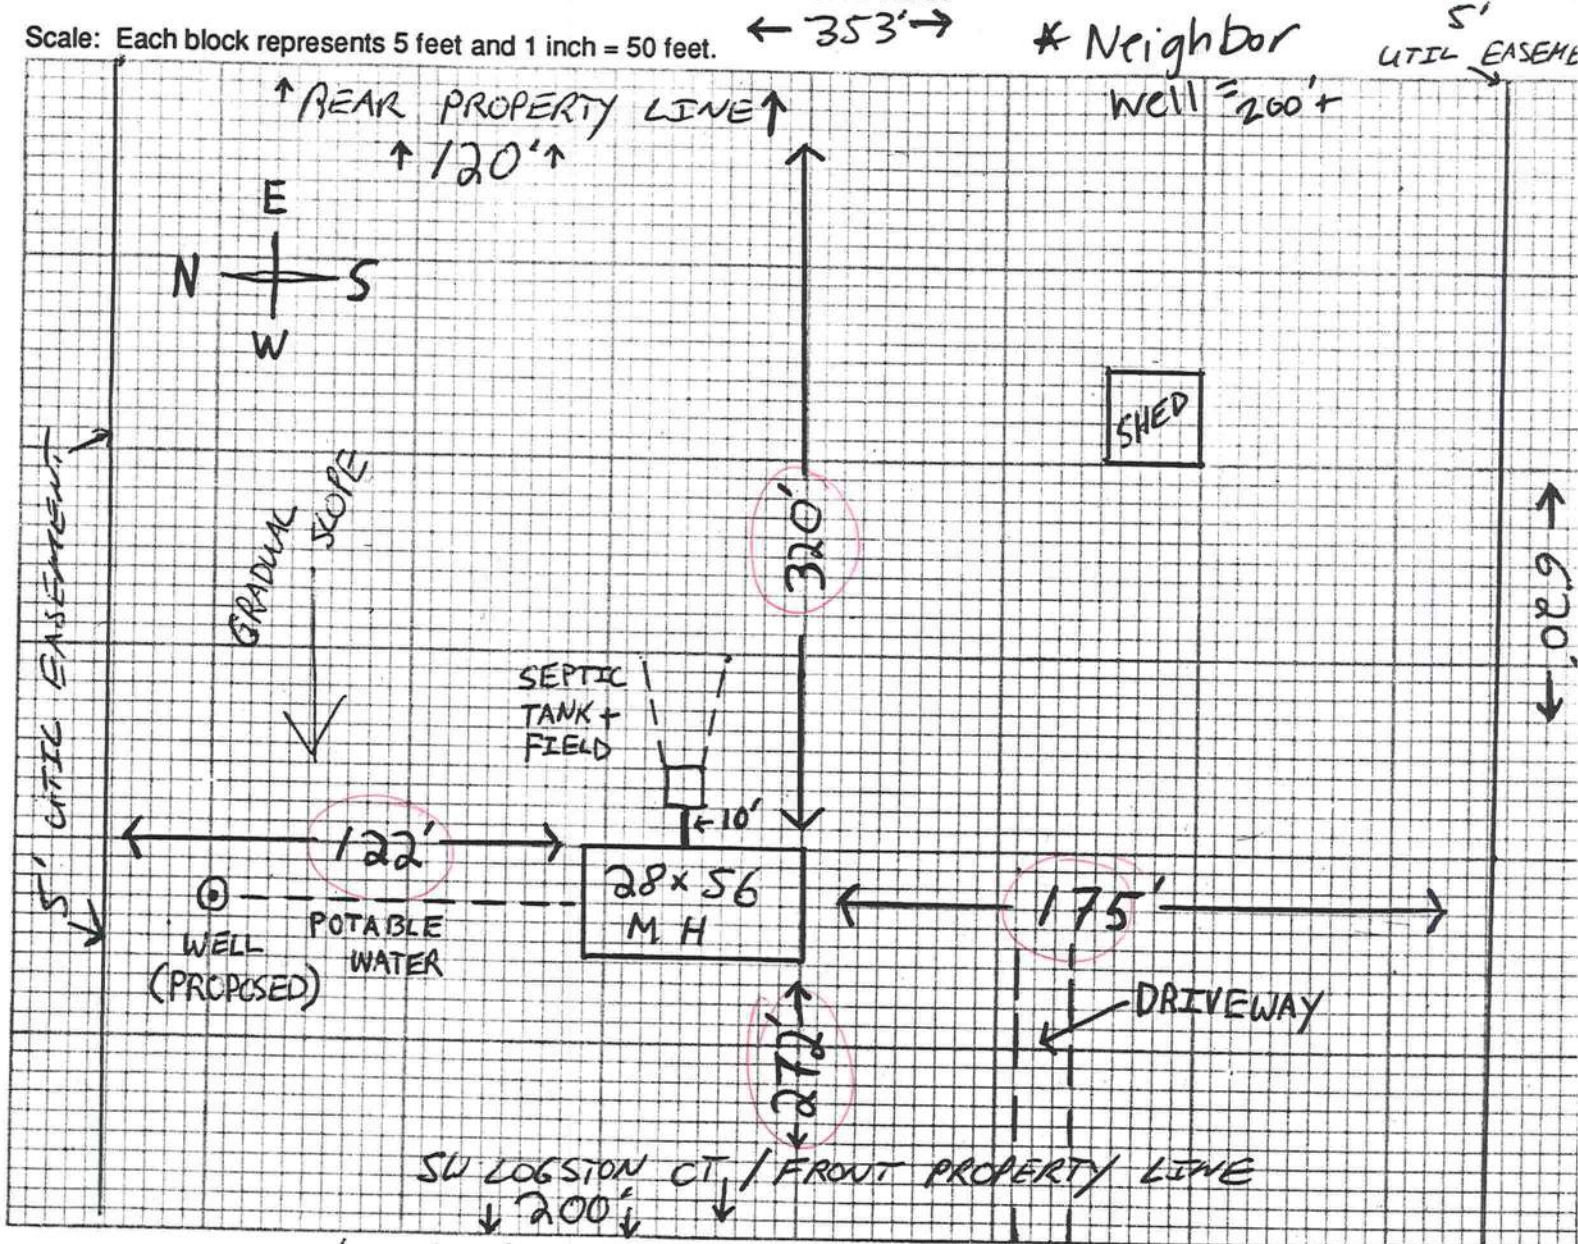 ← 353' →
Scale: Each block represents 5 feet and 1 inch = 50 feet.
* Neighbor
well = 200'+
5'
UTIL EASEME
↑ REAR PROPERTY LINE ↑
↑ 120' ↑
E
N S
W
SHED
GRADUAL SLOPE
320'
620'
5' UTIL EASEMENT
SEPTIC
TANK +
FIELD
← 10'
122'
28 x 56
M H
175'
WELL
(PROPOSED)
POTABLE
WATER
DRIVEWAY
272'
SW LOGSTON CT. / FRONT PROPERTY LINE
↓ 200' ↓ ↓